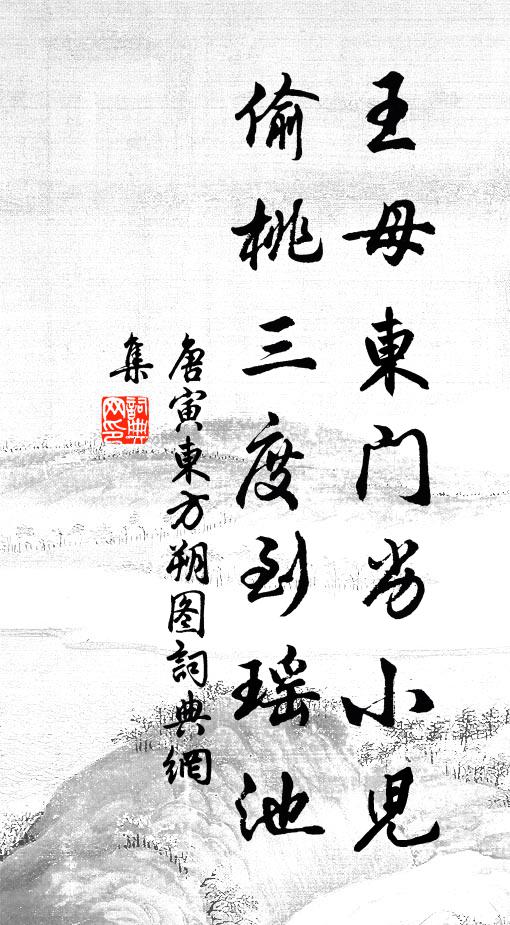 王母東門劣小兒
偷桃三度到瑶池
唐寅東方朔图詞典網
集
詞典網印